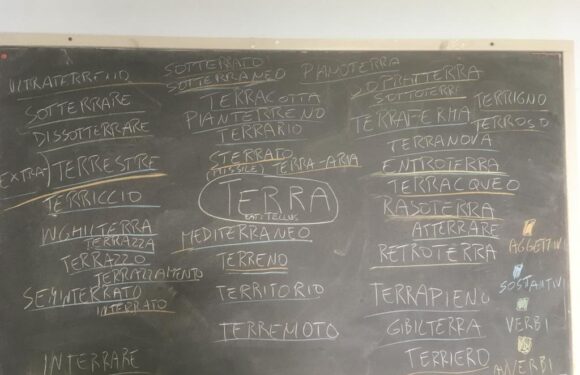 ULTRATERRENO
SOTTERRARE
DISSOTTERRARE
EXTRA-) TERRESTRE
TERRICCIO
INGHILTERRA
TERRAZZA
TERRAZZO
TERRAZZAMENTO
SEMINTERRATO
INTERRATO
INTERRARE
SOTTERRATO
SOTTERRANEO
PIANOTERRA
TERRACOTTA
PIANTERRENO
TERRARIO
STERRATO
(MISSILE) TERRA-ARIA
TERRA
MEDITERRANEO
TERRENO
TERRITORIO
TERREMOTO
SOPRATTERRA
SOTTOTERRA
TERRAFERMA
TERRIGNO
TERROSO
TERRANOVA
ENTROTERRA
TERRACQUEO
RASOTERRA
ATTERRARE
RETROTERRA
TERRAPIENO
GIBILTERRA
TERRIERO
AGGETTIVI
SOSTANTIVI
VERBI
AVVERBI